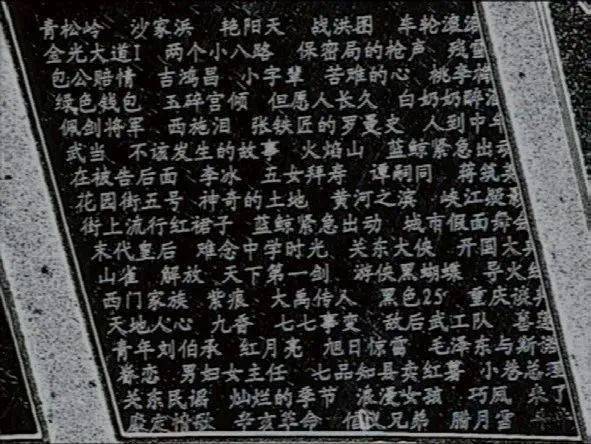 青松岭 沙家浜 艳阳天 战洪图 车轮滚滚
金光大道I 两个小八路 保密局的枪声 残雪
包公赔情 吉鸿昌 小字辈 苦难的心 桃李梅
绿色钱包 玉碎宫倾 但愿人长久 白奶奶醉酒
佩剑将军 西施泪 张铁匠的罗曼史 人到中年
武当 不该发生的故事 火焰山 蓝鲸紧急出动
在被告后面 李冰 五女拜寿 谭嗣同
花园街五号 神奇的土地 黄河之滨 峡江疑影
街上流行红裙子 蓝鲸紧急出动 城市假面舞会
末代皇后 难忘中学时光 关东大侠 开国大典
山雀 解放 天下第一剑 游侠黑蝴蝶 导火线
西门家族 紫痕 大禹传人 黑色25 重庆谈判
天地人心 九香 七七事变 敌后武工队 喜莲
青年刘伯承 红月亮 旭日惊雷 毛泽东与斯诺
眷恋 男妇女主任 七品知县卖红薯 小巷总理
关东民谣 灿烂的季节 浪漫女孩 巧凤 来了
康定情歌 辛亥革命 兄弟 腊月雪